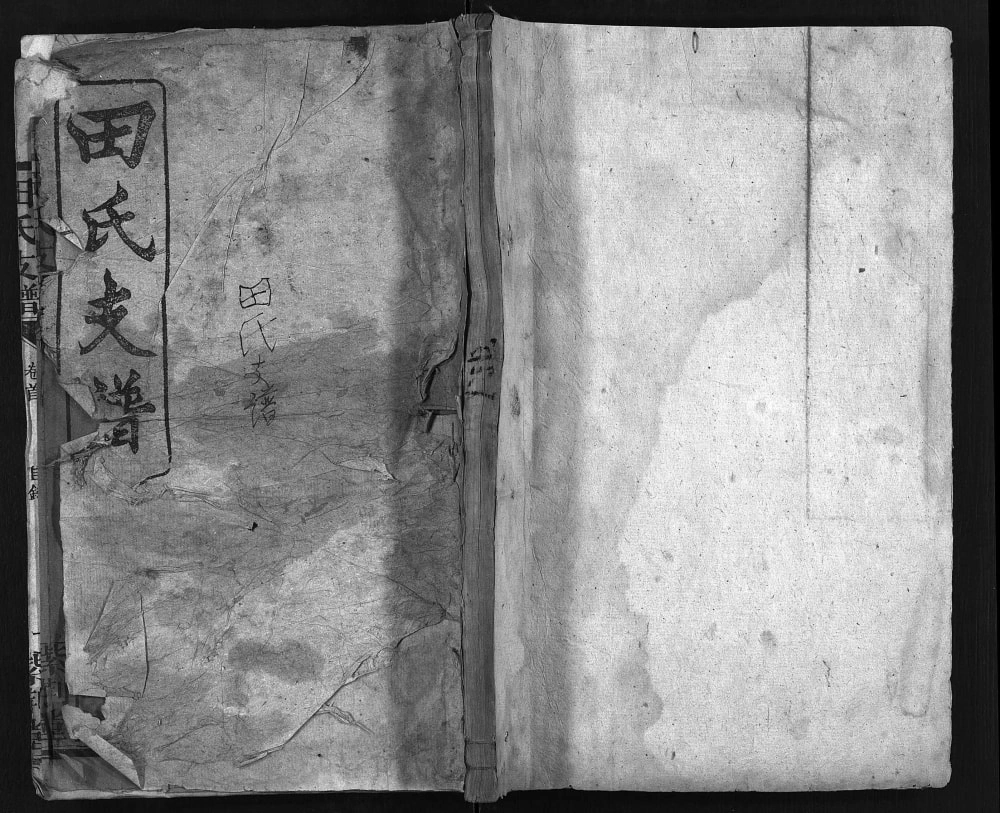 田氏支譜
田氏支譜
田氏支譜
卷首
目錄
一
紫荊